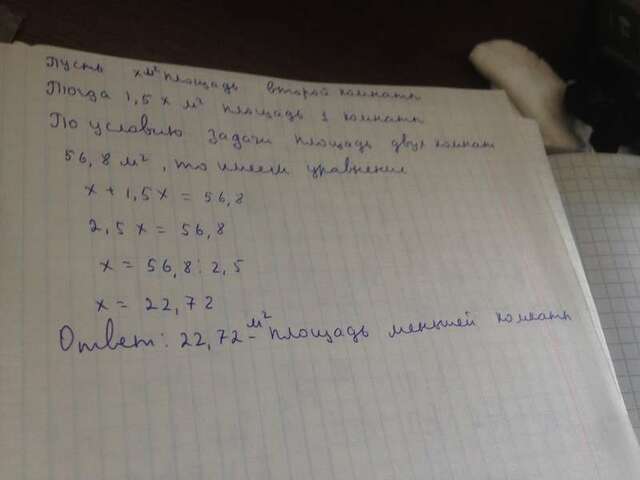 Пусть х м² площадь второй комнаты
Тогда 1,5 х м² площадь 1 комнаты
По условию задачи площадь двух комнат
56,8 м², то имеем уравнение
х + 1,5х = 56,8
2,5 х = 56,8
х = 56,8 : 2,5
х = 22,72
Ответ: 22,72 м² - площадь меньшей комнаты